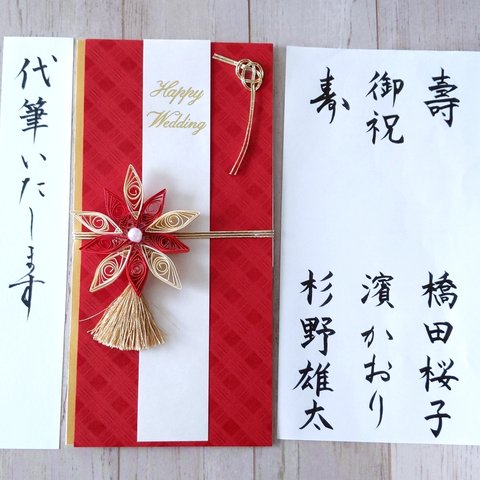 壽
橋田桜子
御祝
濱かおり
寿
杉野雄太
Happy
Wedding
代筆いたします